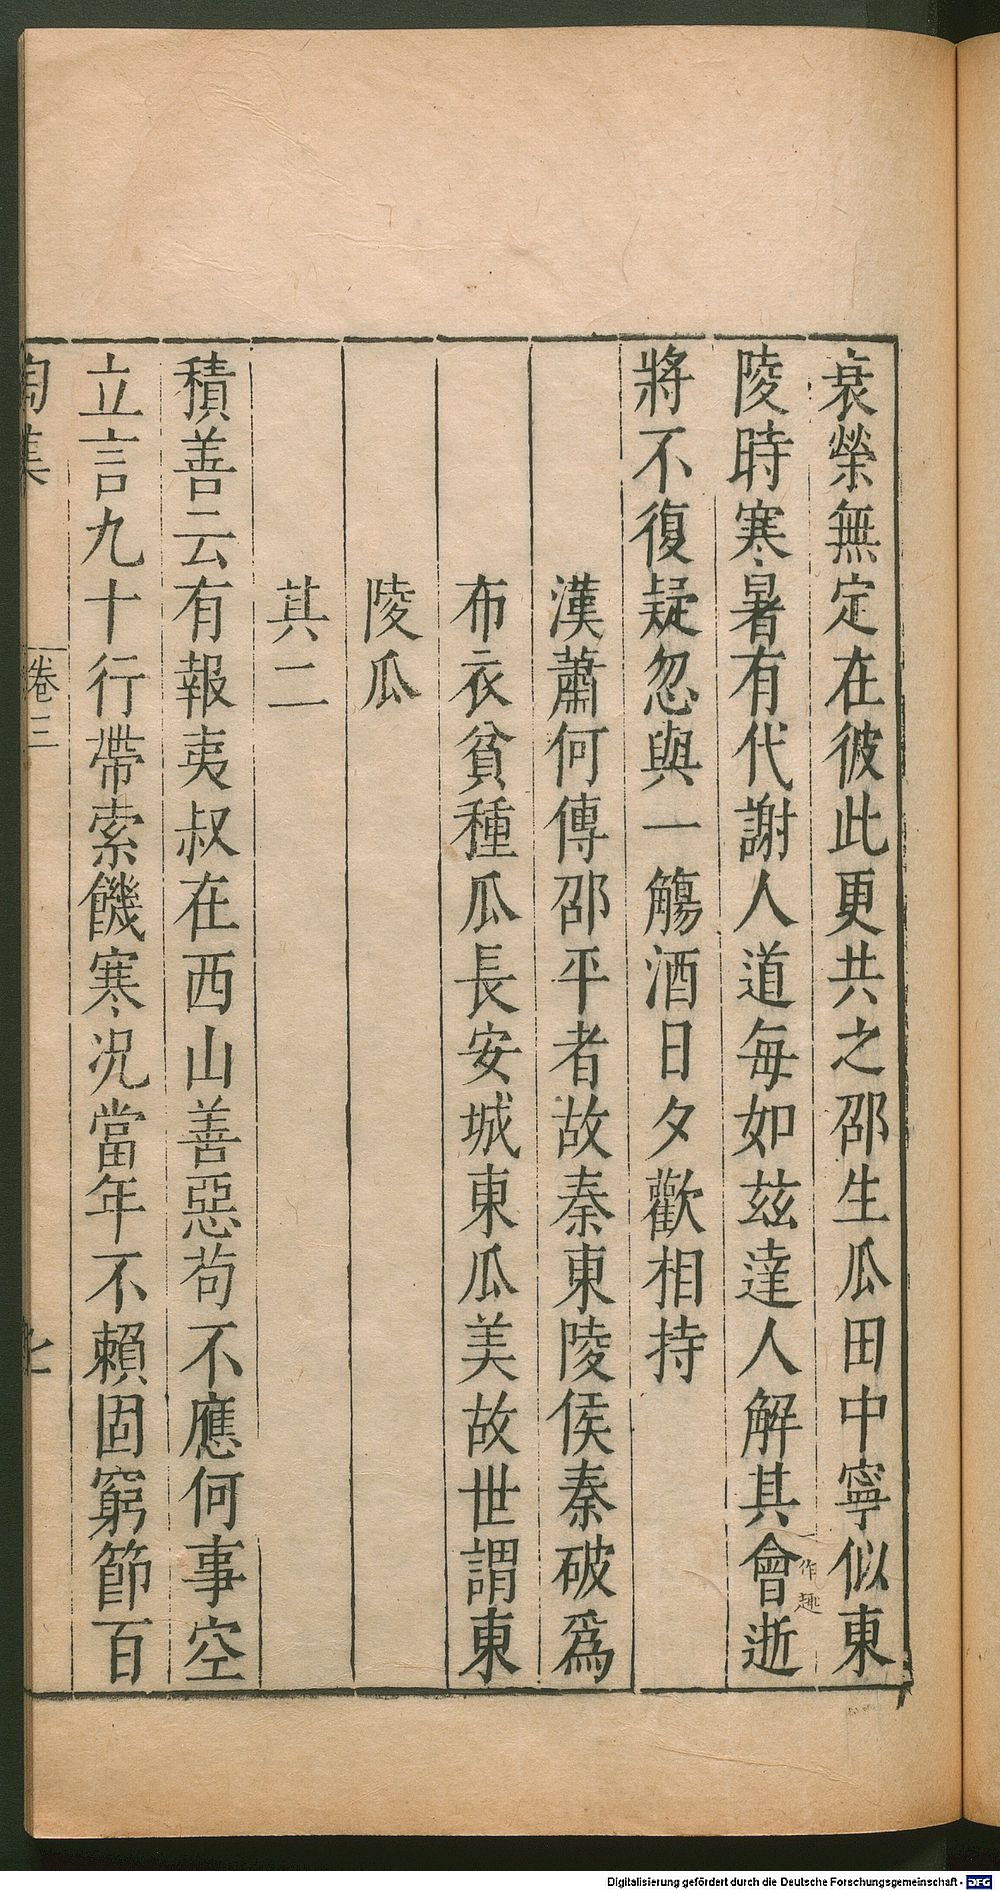 衰榮無定在彼此更共之邵生瓜田中寧似東
陵時寒暑有代謝人道每如玆達人解其會逝
一作趣
將不復疑忽與一觴酒日夕歡相持
漢蕭何傳邵平者故秦東陵侯秦破爲
布衣貧種瓜長安城東瓜美故世謂東
陵瓜
其二
積善云有報夷叔在西山善惡茍不應何事空
立言九十行帶索饑寒况當年不賴固窮節百
陶集
卷三
七
Digitalisierung gefördert durch die Deutsche Forschungsgemeinschaft - DFG